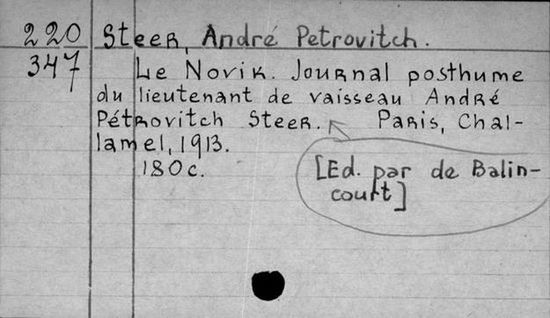 220 Steer, André Petrovitch.
347 Le Novik. Journal posthume
du lieutenant de vaisseau André
Pétrovitch Steer. Paris, Chal-
lamel, 1913.
180 c.
[Ed. par de Balin-
court]